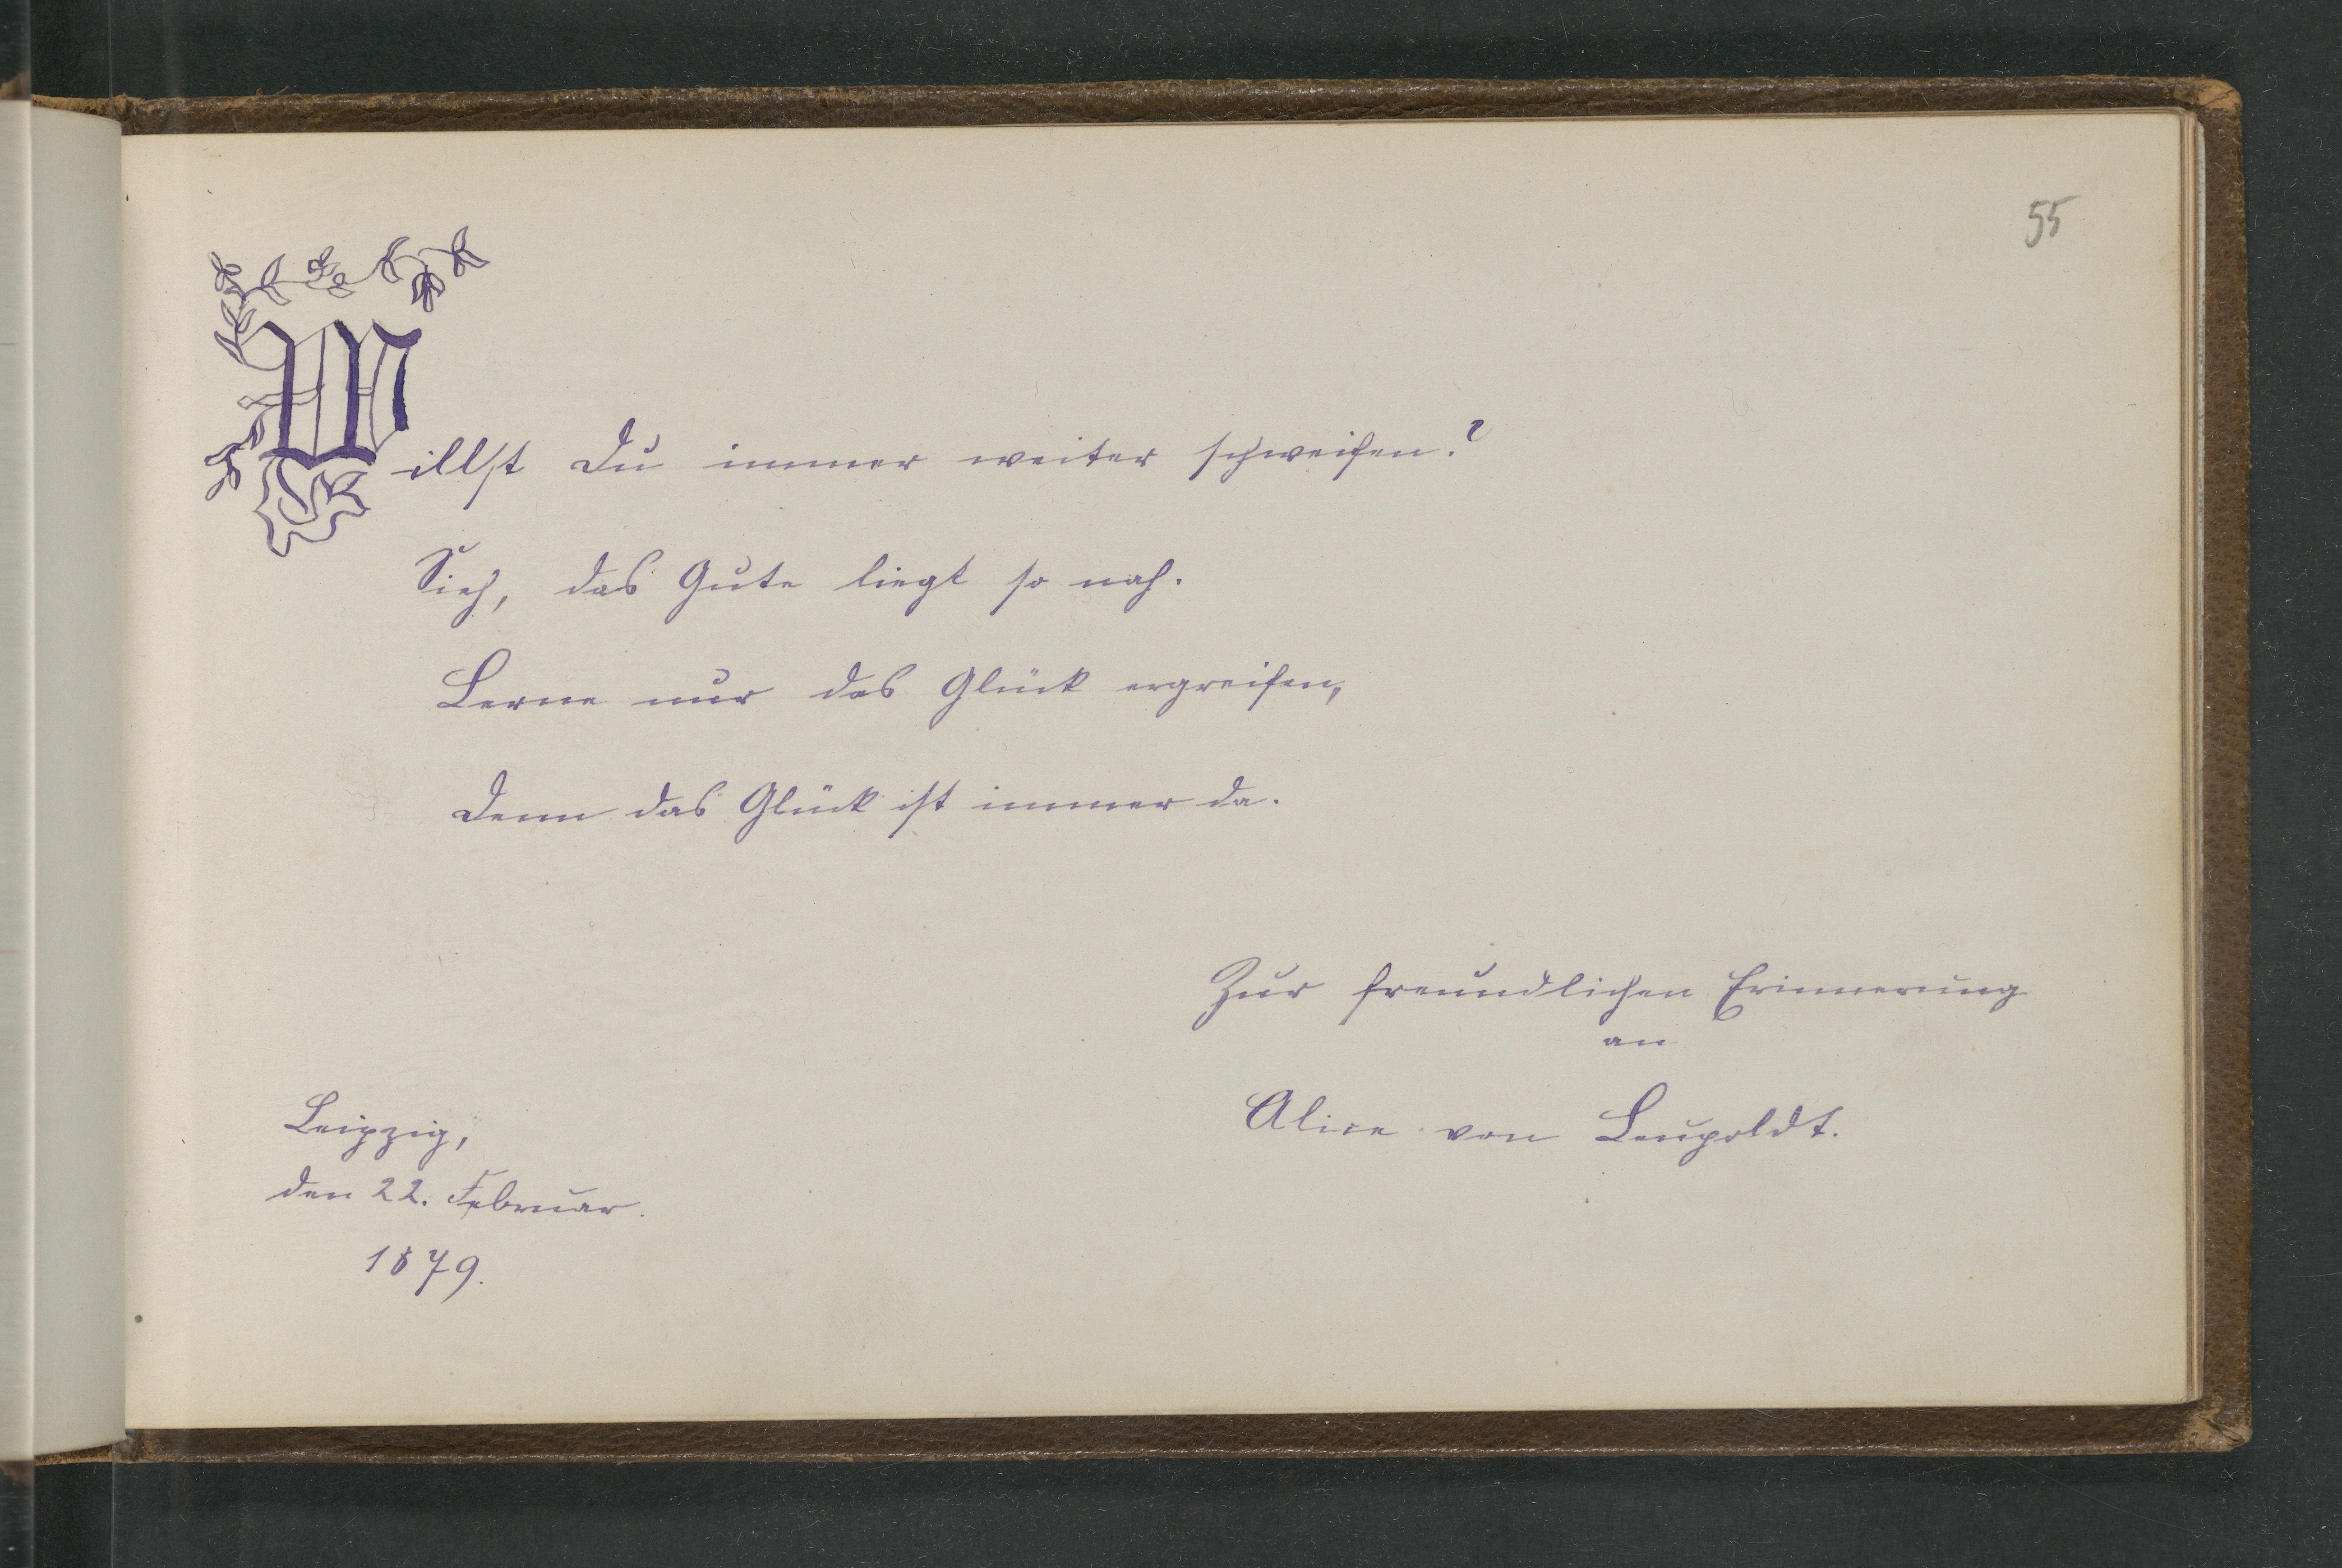 55
Willst Du immer weiter schweifen?
Sieh, das Gute liegt so nah.
Lerne nur das Glück ergreifen,
Denn das Glück ist immer da.
Zur freundlichen Erinnerung
an
Alice von Leupoldt.
Leipzig,
den 22. Februar.
1879.